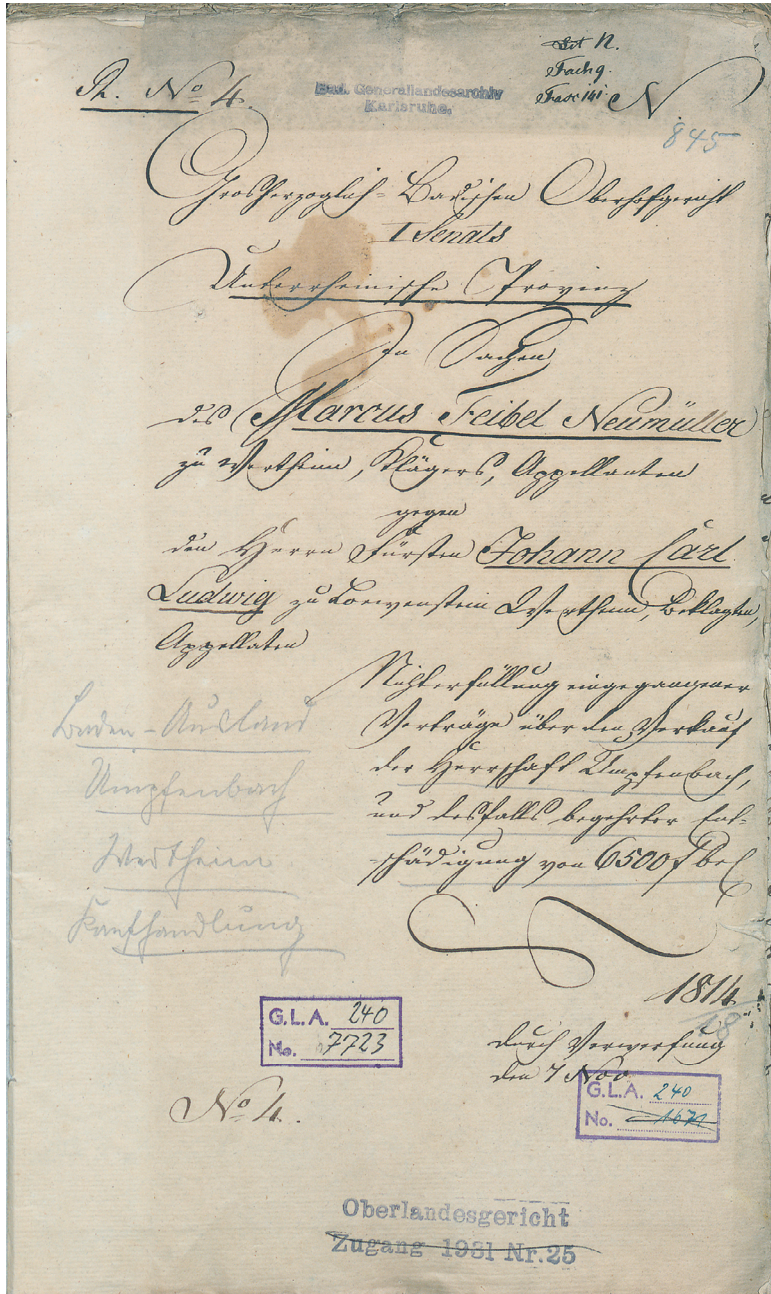 Lit N.
Fach 9.
Fasc 141.
R. No 4.
Bad. Generallandesarchiv
Karlsruhe.
N
845
Grosherzoglich-Badischen Oberhofgericht
I Senats
Unterrheinische Provinz
In Sachen
des Marcus Feibel Neumüller
zu Wertheim, Klägers, Appellanten
gegen
den Herrn Fürsten Johann Carl
Ludwig zu Loewenstein Wertheim, Beklagten,
Appellaten
Nichterfüllung eingegangener
Verträge über den Verkauf
der Herrschaft Umpfenbach,
und desfalls begehrter Ent-
schädigung von 6500 f bet
Baden-Ausland
Umpfenbach
Wertheim
Kaufhandlung
1814
18
G.L.A. 240
No. 7723
durch Verwerfung
den 7 Nov
G.L.A. 240
No. 1671
No 4.
Oberlandesgericht
Zugang 1931 Nr. 25